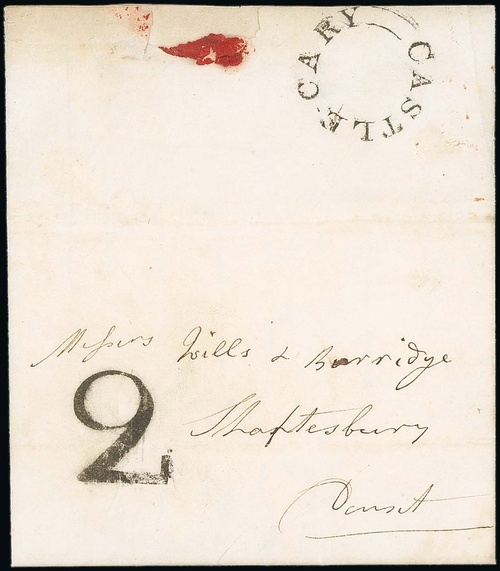 CASTLE CARY
Messers Wills & Burridge
2
Shaftesbury
Dorset